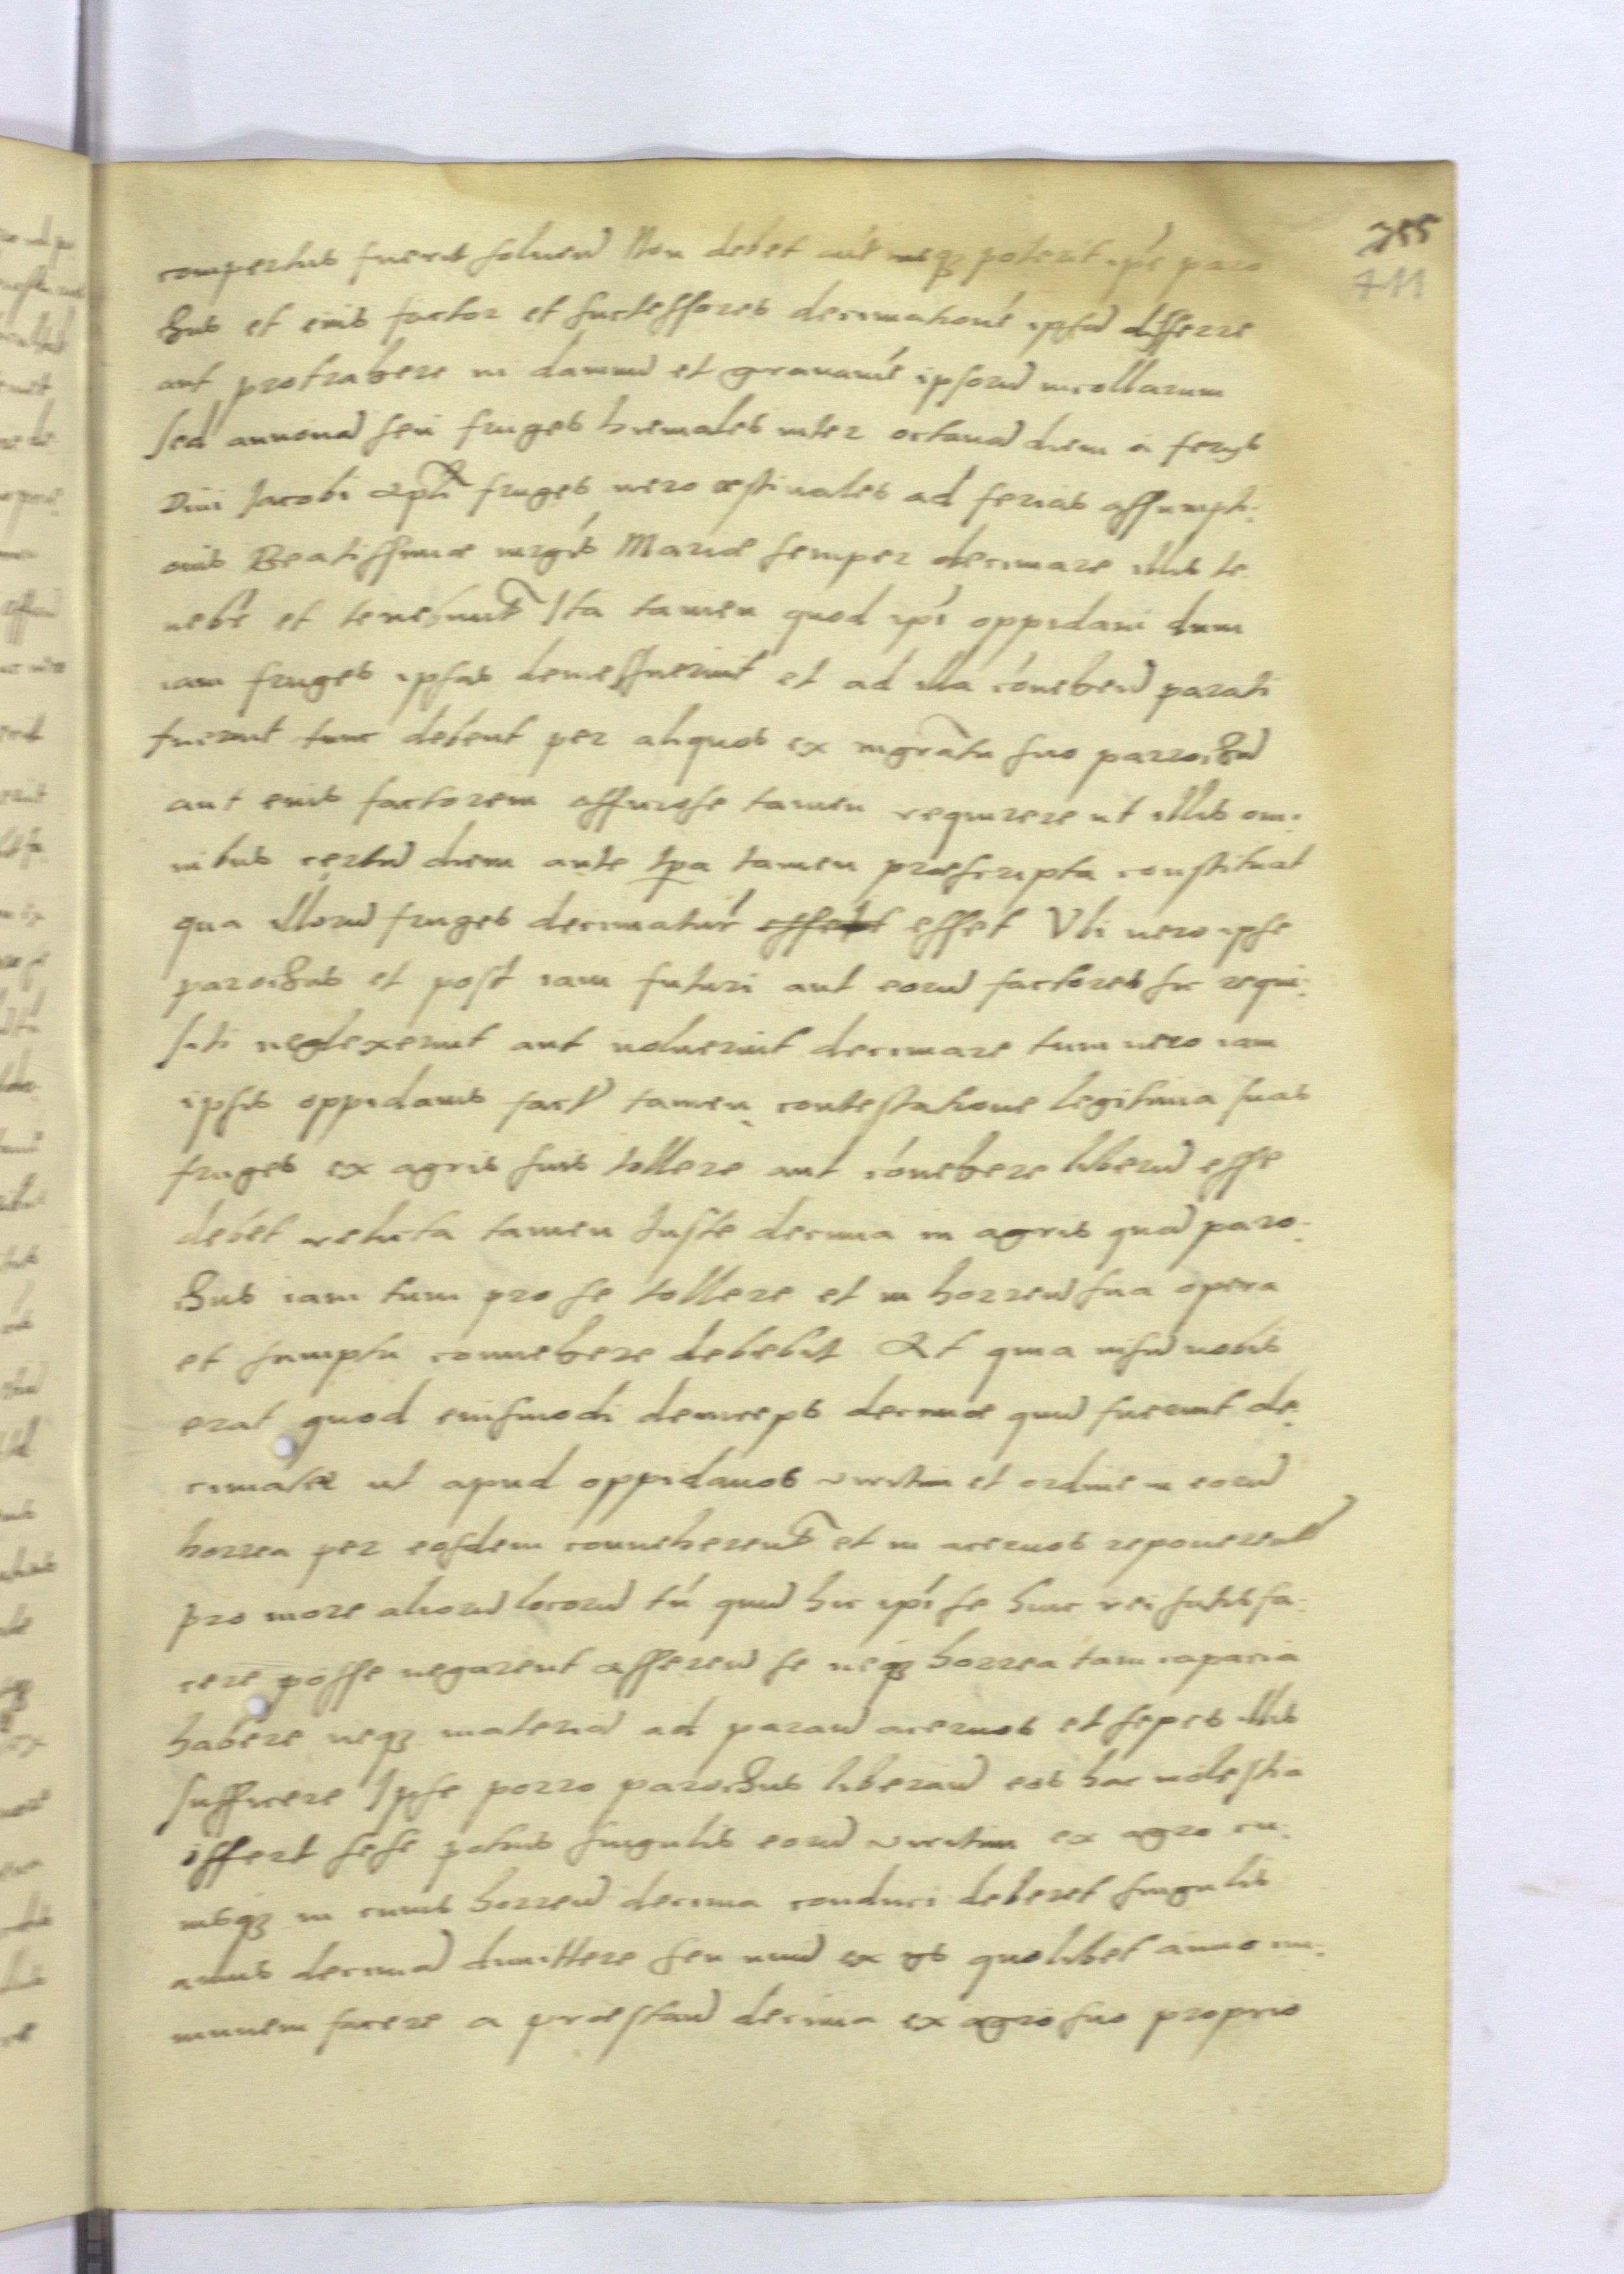 355
711
compertus fuerit soluend Non debet aut neqꝫ poterit ipse paro
chus et eius factor et successores decimationé ipsa differre
aut protrahere in damnu et grauamé ipsoru incollarum
Sed annona seu fruges hiemales inter octaua diem a ferijs
Diui Jacobi Apli fruges uero æstiuales ad ferias assumpti:
onis Beatissimæ uirgis Mariæ semper decimare illis te
nebr et tenebunt Ita tamen quod ipi oppidani dum
iam fruges ipsas demessuerint et ad illa cónehend parati
fuerint tunc debent per aliquos ex mgratu suo parrochu
aut eius factorem officiose tamen requirere ut illis om:
nibus certu diem ante tpa tamen præscripta constituat
qua illoru fruges decimatur esset Vbi uero ipse
parochus et post iam futuri aut eoru factores sic requi:
siti neglexerint aut noluerint decimare tum uero iam
ipsis oppidanis fact tamen contestatione legitima suas
fruges ex agris suis tollere aut cónehere liberu esse
debet relicta tamen Iuste decima in agris qua paro:
chus iam tum pro se tollere et in horreu sua opera
et sumptu connehere debebit At quia uisu nobis
erat quod eiusmodi deinceps decimæ quu fuerint de:
cimatæ ut apud oppidanos uiritim et ordine in eoru
horrea per eosdem conneherent et in aceruos reponerent
pro more alioru locoru tn quu hic ipi se huic rei satisfa:
cere posse negarent asserend se neqꝫ horrea tam capacia
habere neqꝫ materia ad parand aceruos et sepes illis
sufficere Ipse porro parochus liberand eos hac molestia
offert sese potius singulis eoru uiritim ex agro cu:
iusqꝫ in cuius horreu decima conduci deberet singulis
annis decima dimittere seu unu ex ijs quolibet anno im:
munem facere a præstand decima ex agro suo proprio